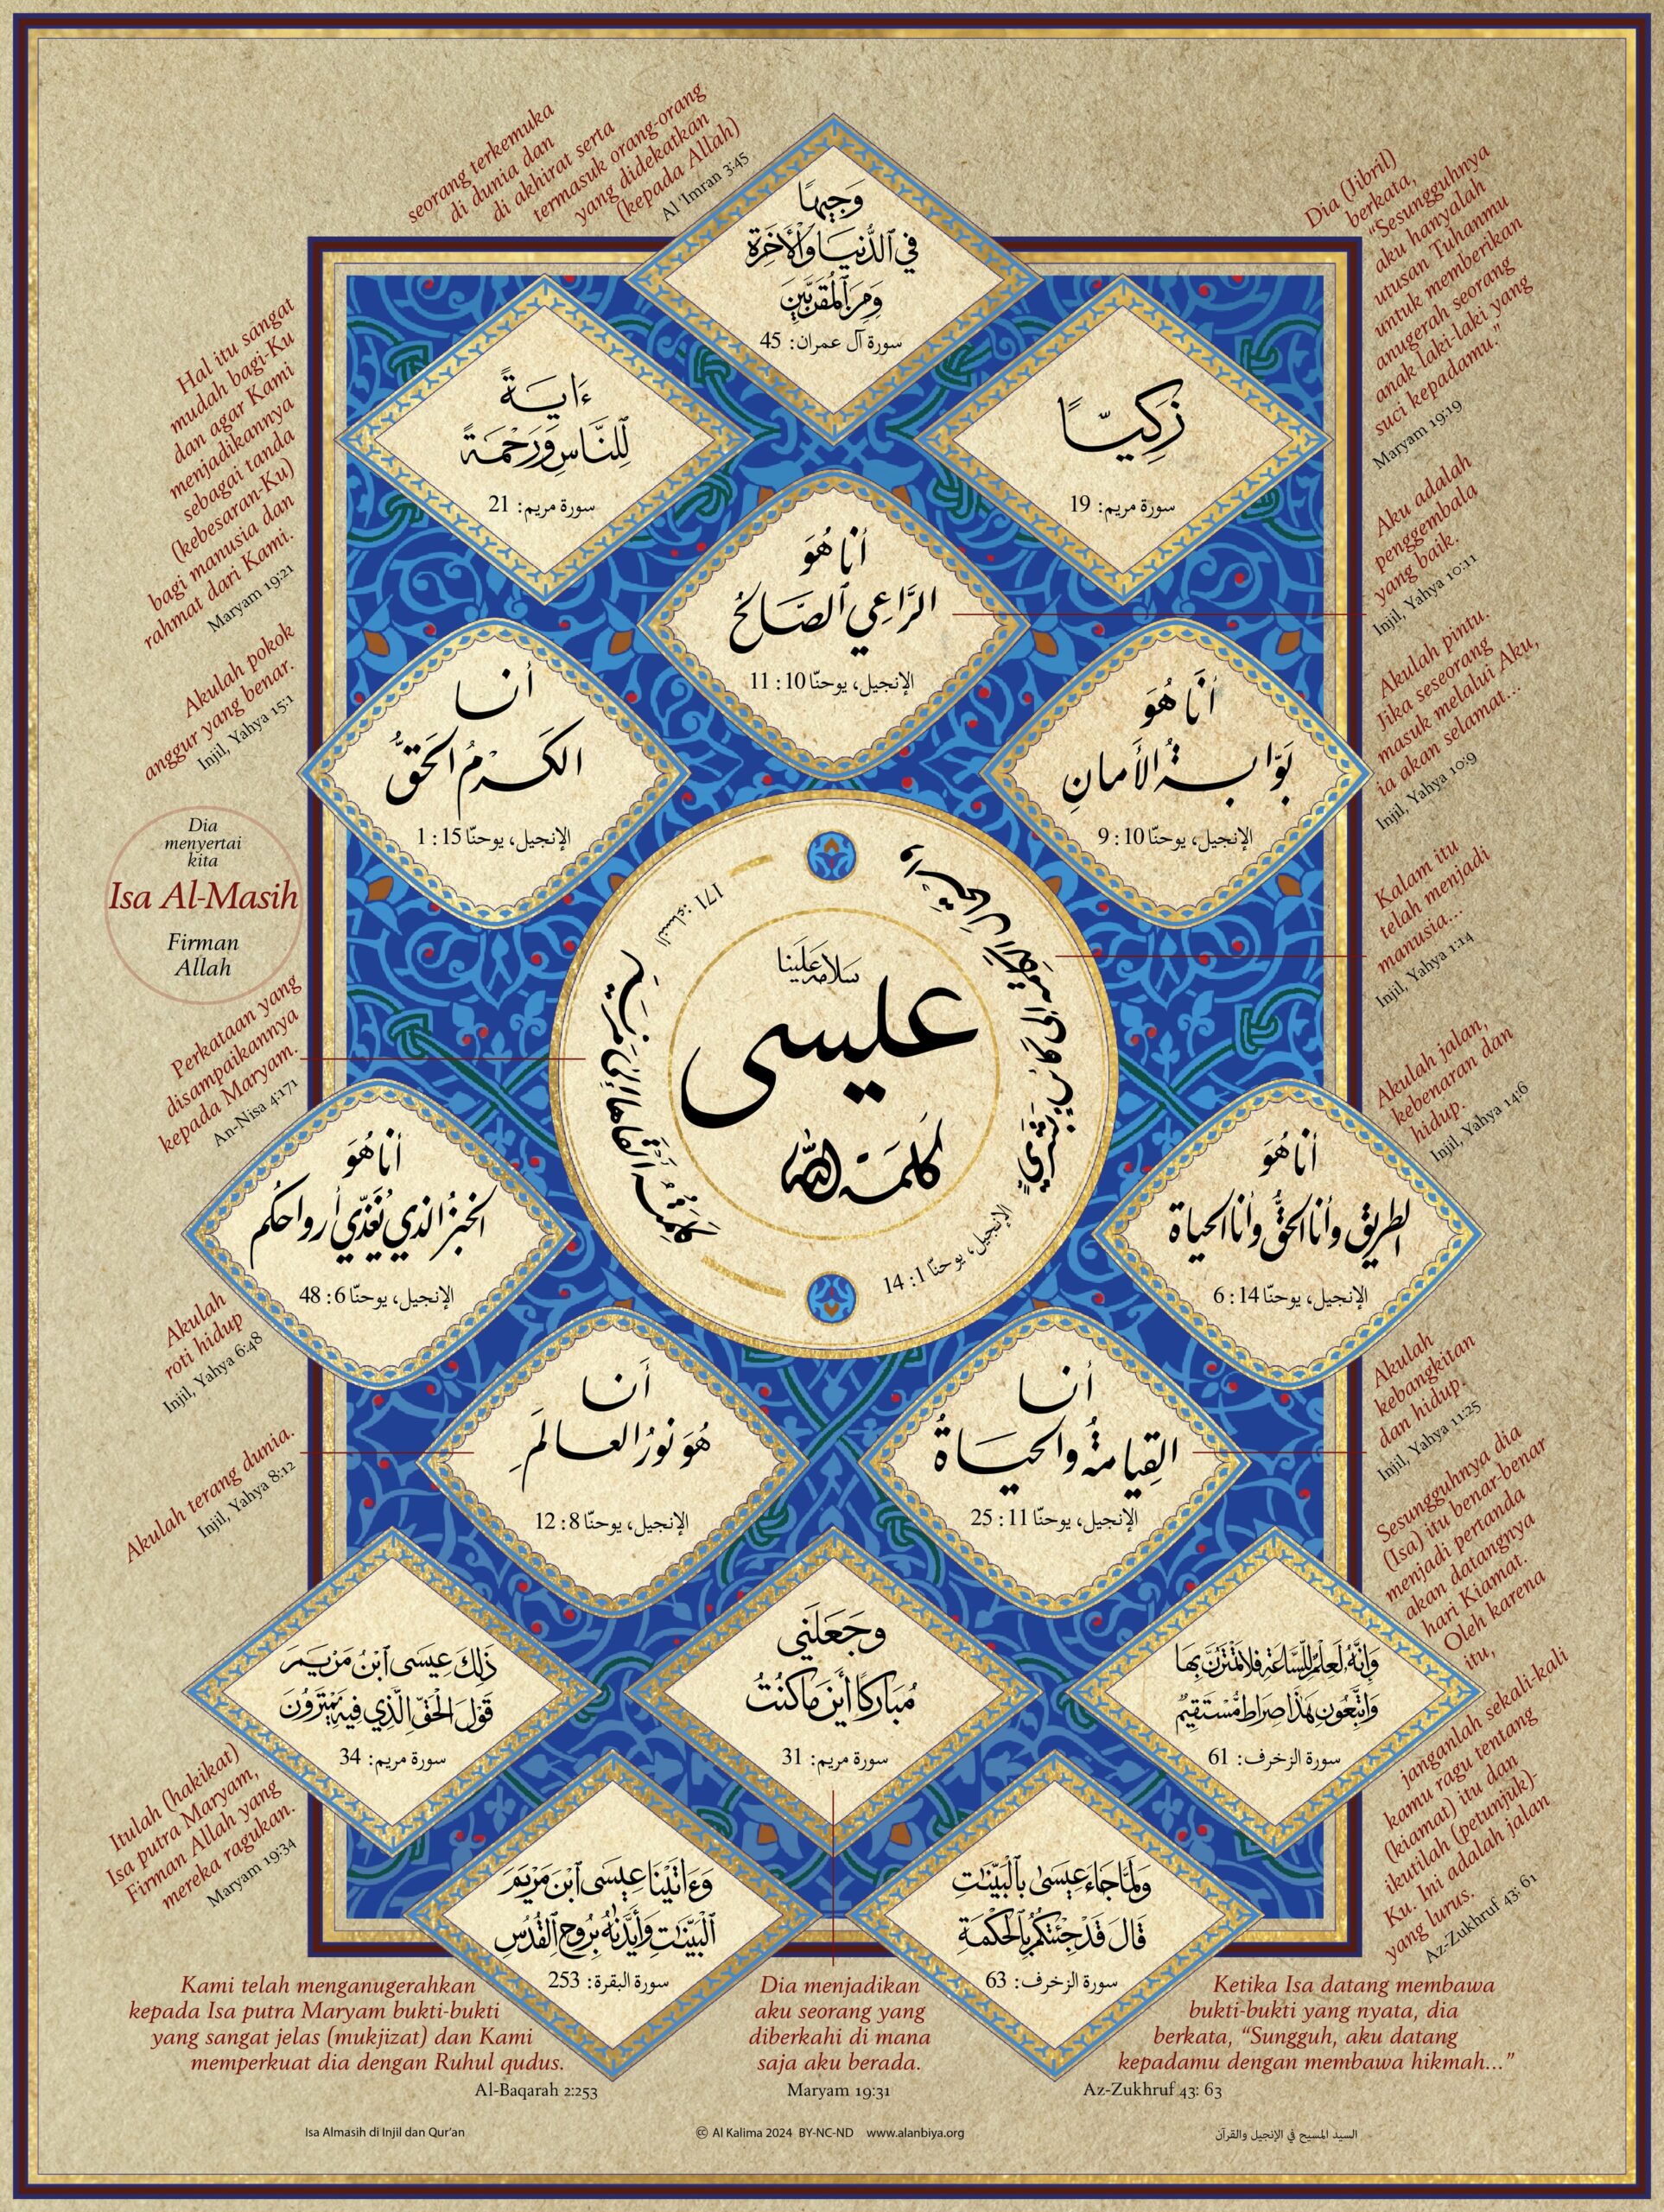 seorang terkemuka
di dunia dan
di akhirat serta
termasuk orang-orang
yang didekatkan
(kepada Allah)
Al 'Imran 3:45
وَجِيهًا
فِي ٱلدُّنْيَا وَٱلْآخِرَةِ
وَمِنَ ٱلْمُقَرَّبِينَ
سورة آل عمران: 45
Dia (Jibril)
berkata,
“Sesungguhnya
aku hanyalah
utusan Tuhanmu
untuk memberikan
anugerah seorang
anak laki-laki yang
suci kepadamu.”
Maryam 19:19
زَكِيًّا
سورة مريم: 19
Hal itu sangat
mudah bagi-Ku
dan agar Kami
menjadikannya
sebagai tanda
(kebesaran-Ku)
bagi manusia dan
rahmat dari Kami.
Maryam 19:21
ءَايَةً
لِّلنَّاسِ وَرَحْمَةً
سورة مريم: 21
أنا هُوَ
الرَّاعِي ٱلصَّالِحُ
الإنجيل، يوحنّا 10: 11
Aku adalah
penggembala
yang baik.
Injil, Yahya 10:11
Akulah pokok
anggur yang benar.
Injil, Yahya 15:1
أنا
الكَرْمُ الحَقُّ
الإنجيل، يوحنّا 15: 1
أنَا هُوَ
بَوّابةُ الأَمانِ
الإنجيل، يوحنّا 10: 9
Akulah pintu.
Jika seseorang
masuk melalui Aku,
ia akan selamat...
Injil, Yahya 10:9
Dia
menyertai
kita
Isa Al-Masih
Firman
Allah
سلامه علينا
عيسى
كلمة الله
النساء: 171
كَلِمَتُهُ أَلْقَاهَا إِلَىٰ مَرْيَمَ
الإنجيل، يوحنّا 1: 14
Kalam itu
telah menjadi
manusia...
Injil, Yahya 1:14
Perkataan yang
disampaikannya
kepada Maryam.
An-Nisa 4:171
Akulah jalan,
kebenaran dan
hidup.
Injil, Yahya 14:6
أنا هُوَ
الخُبزُ الذي يُغَذّي أرواحكُم
الإنجيل، يوحنّا 6: 48
أنا هُوَ
الطريقُ وأنا الحقُّ وأنا الحياة
الإنجيل، يوحنّا 14: 6
Akulah
roti hidup
Injil, Yahya 6:48
أنا
هُوَ نورُ العالَمِ
الإنجيل، يوحنّا 8: 12
أنا
القِيامةُ والحَياةُ
الإنجيل، يوحنّا 11: 25
Akulah
kebangkitan
dan hidup.
Injil, Yahya 11:25
Akulah terang dunia.
Injil, Yahya 8:12
Sesungguhnya dia
(Isa) itu benar-benar
menjadi pertanda
akan datangnya
hari Kiamat.
Oleh karena
itu,
janganlah sekali-kali
kamu ragu tentang
(kiamat) itu dan
ikutilah (petunjuk)-
Ku. Ini adalah jalan
yang lurus.
Az-Zukhruf 43: 61
ذَٰلِكَ عِيسَى ٱبْنُ مَرْيَمَ
قَوْلَ ٱلْحَقِّ ٱلَّذِي فِيهِ يَمْتَرُونَ
سورة مريم: 34
وَجَعَلَنِي
مُبَارَكًا أَيْنَ مَا كُنْتُ
سورة مريم: 31
وَإِنَّهُ لَعِلْمٌ لِّلسَّاعَةِ فَلَا تَمْتَرُنَّ بِهَا
وَاتَّبِعُونِ هَٰذَا صِرَاطٌ مُّسْتَقِيمٌ
سورة الزخرف: 61
Itulah (hakikat)
Isa putra Maryam,
Firman Allah yang
mereka ragukan.
Maryam 19:34
وَءَاتَيْنَا عِيسَى ٱبْنَ مَرْيَمَ
ٱلْبَيِّنَٰتِ وَأَيَّدْنَٰهُ بِرُوحِ ٱلْقُدُسِ
سورة البقرة: 253
وَلَمَّا جَاءَ عِيسَىٰ بِٱلْبَيِّنَٰتِ
قَالَ قَدْ جِئْتُكُم بِٱلْحِكْمَةِ
سورة الزخرف: 63
Kami telah menganugerahkan
kepada Isa putra Maryam bukti-bukti
yang sangat jelas (mukjizat) dan Kami
memperkuat dia dengan Ruhul qudus.
Al-Baqarah 2:253
Dia menjadikan
aku seorang yang
diberkahi di mana
saja aku berada.
Maryam 19:31
Ketika Isa datang membawa
bukti-bukti yang nyata, dia
berkata, “Sungguh, aku datang
kepadamu dengan membawa hikmah...”
Az-Zukhruf 43: 63
Isa Almasih di Injil dan Qur'an
Al Kalima 2024 BY-NC-ND www.alanbiya.org
السيد المسيح في الإنجيل والقرآن